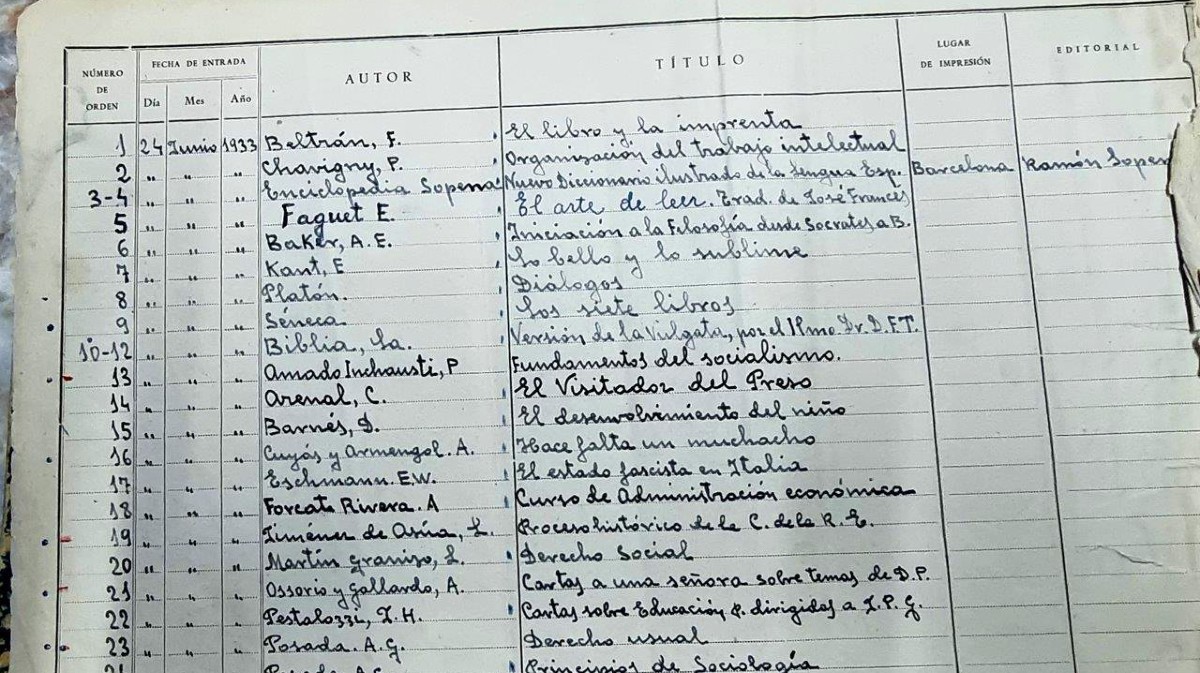 NÚMERO DE ORDEN FECHA DE ENTRADA AUTOR TÍTULO LUGAR DE IMPRESIÓN EDITORIAL
Día Mes Año
1 24 Junio 1933 Beltrán, F. El libro y la imprenta
2 " " " Chavigny, P. Organización del trabajo intelectual
3-4 " " " Enciclopedia Sopena Nuevo Diccionario ilustrado de la Lengua Esp. Barcelona Ramón Sopen
5 " " " Faguet E. El arte de leer. Trad. de José Francés
6 " " " Baker, A.E. Iniciación a la Filosofía desde Socrates a B.
7 " " " Kant, E Lo bello y lo sublime
8 " " " Platón. Diálogos
9 " " " Séneca Los siete libros
10-12 " " " Biblia, La. Versión de la Vulgata, por el Ilmo. Dr. D. F.T.
13 " " " Amado Inchausti, P Fundamentos del socialismo.
14 " " " Arenal, C. El Visitador del Preso
15 " " " Barnés, D. El desenvolvimiento del niño
16 " " " Cuyás y Armengol. A. Hace falta un muchacho
17 " " " Eschmann. E.W. El estado fascista en Italia
18 " " " Forcat Rivera. A Curso de Administración económica
19 " " " Jiménez de Asúa, L. Proceso histórico de la C. de la R. E.
20 " " " Martín Granizo, L. Derecho Social
21 " " " Ossorio y Gallardo, A. Cartas a una señora sobre temas de D.P.
22 " " " Pestalozzi, J.H. Cartas sobre Educación P. dirigidos a J.P.G.
23 " " " Posada. A.G. Derecho usual
Principios de Sociología